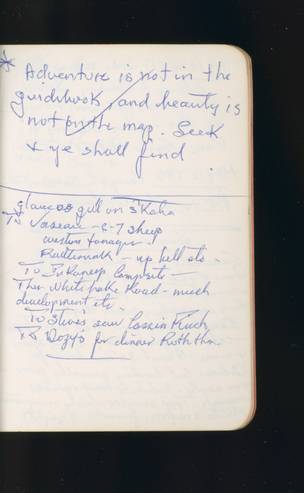 * Adventure is not in the
guidebook, and beauty is
not on the map. Seek
& ye shall find
glaucous gull on Skaha
To Vaseau - 6-7 sheep
western tanager
- up hill etc.
To Inkaneep Campsite -
Then White Lake Road - much
development etc.
To Steve's saw Cassin Finch
To Dozy's for dinner Ruth